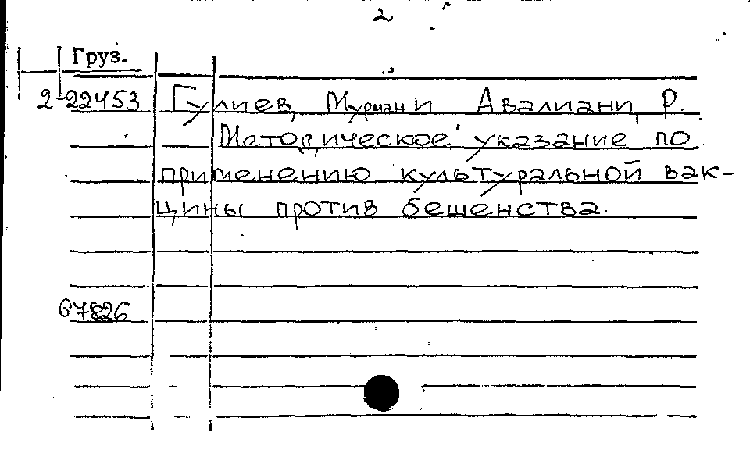 2
Груз.
2-22453 Гулиев, Мурман и Авалиани, Р.
Методическое указание по
применению культуральной вак-
цины против бешенства.
67826